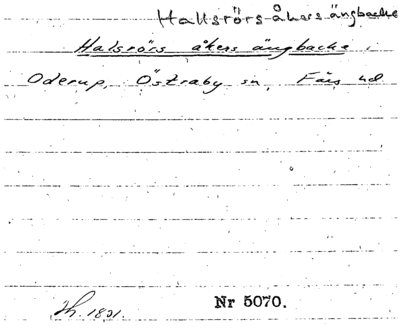 Hallsrörs åkers ängbacke
Halsrörs åkers ängbacke.
Oderup, Östraby sn, Färs hd
Nr 5070.
Th. 1821.